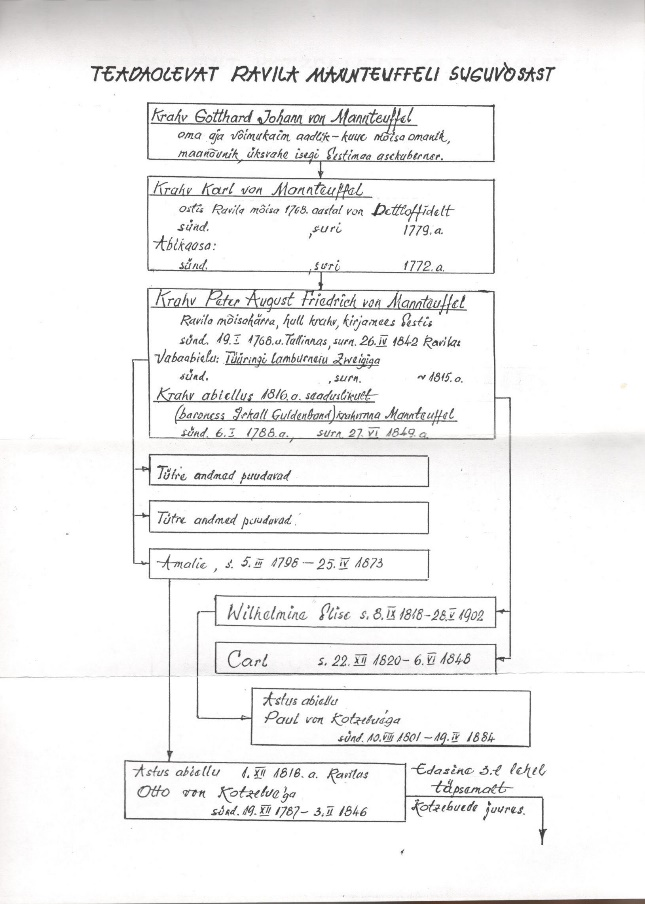 TEADAOLEVAT RAVILA MANNTEUFFELI SUGUVÕSAST
Krahv Gotthard Johann von Mannteuffel
oma aja võimukaim aadlik - kuue mõisa omanik,
maanõunik, üksvahe isegi Eestimaa asekuberner.
Krahv Karl von Mannteuffel
ostis Ravila mõisa 1768. aastal von Dettloffidelt
sünd. , suri 1779. a.
Abikaasa:
sünd. , suri 1772. a.
Krahv Peter August Friedrich von Mannteuffel
Ravila mõisahärra, hull krahv, kirjamees Eestis
sünd. 19. I 1768. a. Tallinnas, surn. 26. IV 1842 Ravilas
Vabaabielu: Tüüringi lamburneiu Zweigiga
sünd. , surn. ~ 1815. a.
Krahv abiellus 1816. a. seaduslikult
(baroness Igkall Guldenband) krahvinna Mannteuffel
sünd. 6. I 1788. a., surn. 27. VI 1849. a.
Tütre andmed puudavad
Tütre andmed puudavad.
Amalie, s. 5. III 1796 - 25. IV 1873
Wilhelmine Elise s. 8. IX 1818 - 28. V 1902
Carl s. 22. XII 1820 - 6. VI 1848
Astus abiellu
Paul von Kotzebuega
sünd. 10. VIII 1801 - 19. IV 1884
Astus abiellu 1. XII 1818. a. Ravilas
Otto von Kotzebuega
sünd. 19. XII 1787 - 3. II 1846
Edasine 3-l lehel
täpsemalt
Kotzebuede juures.